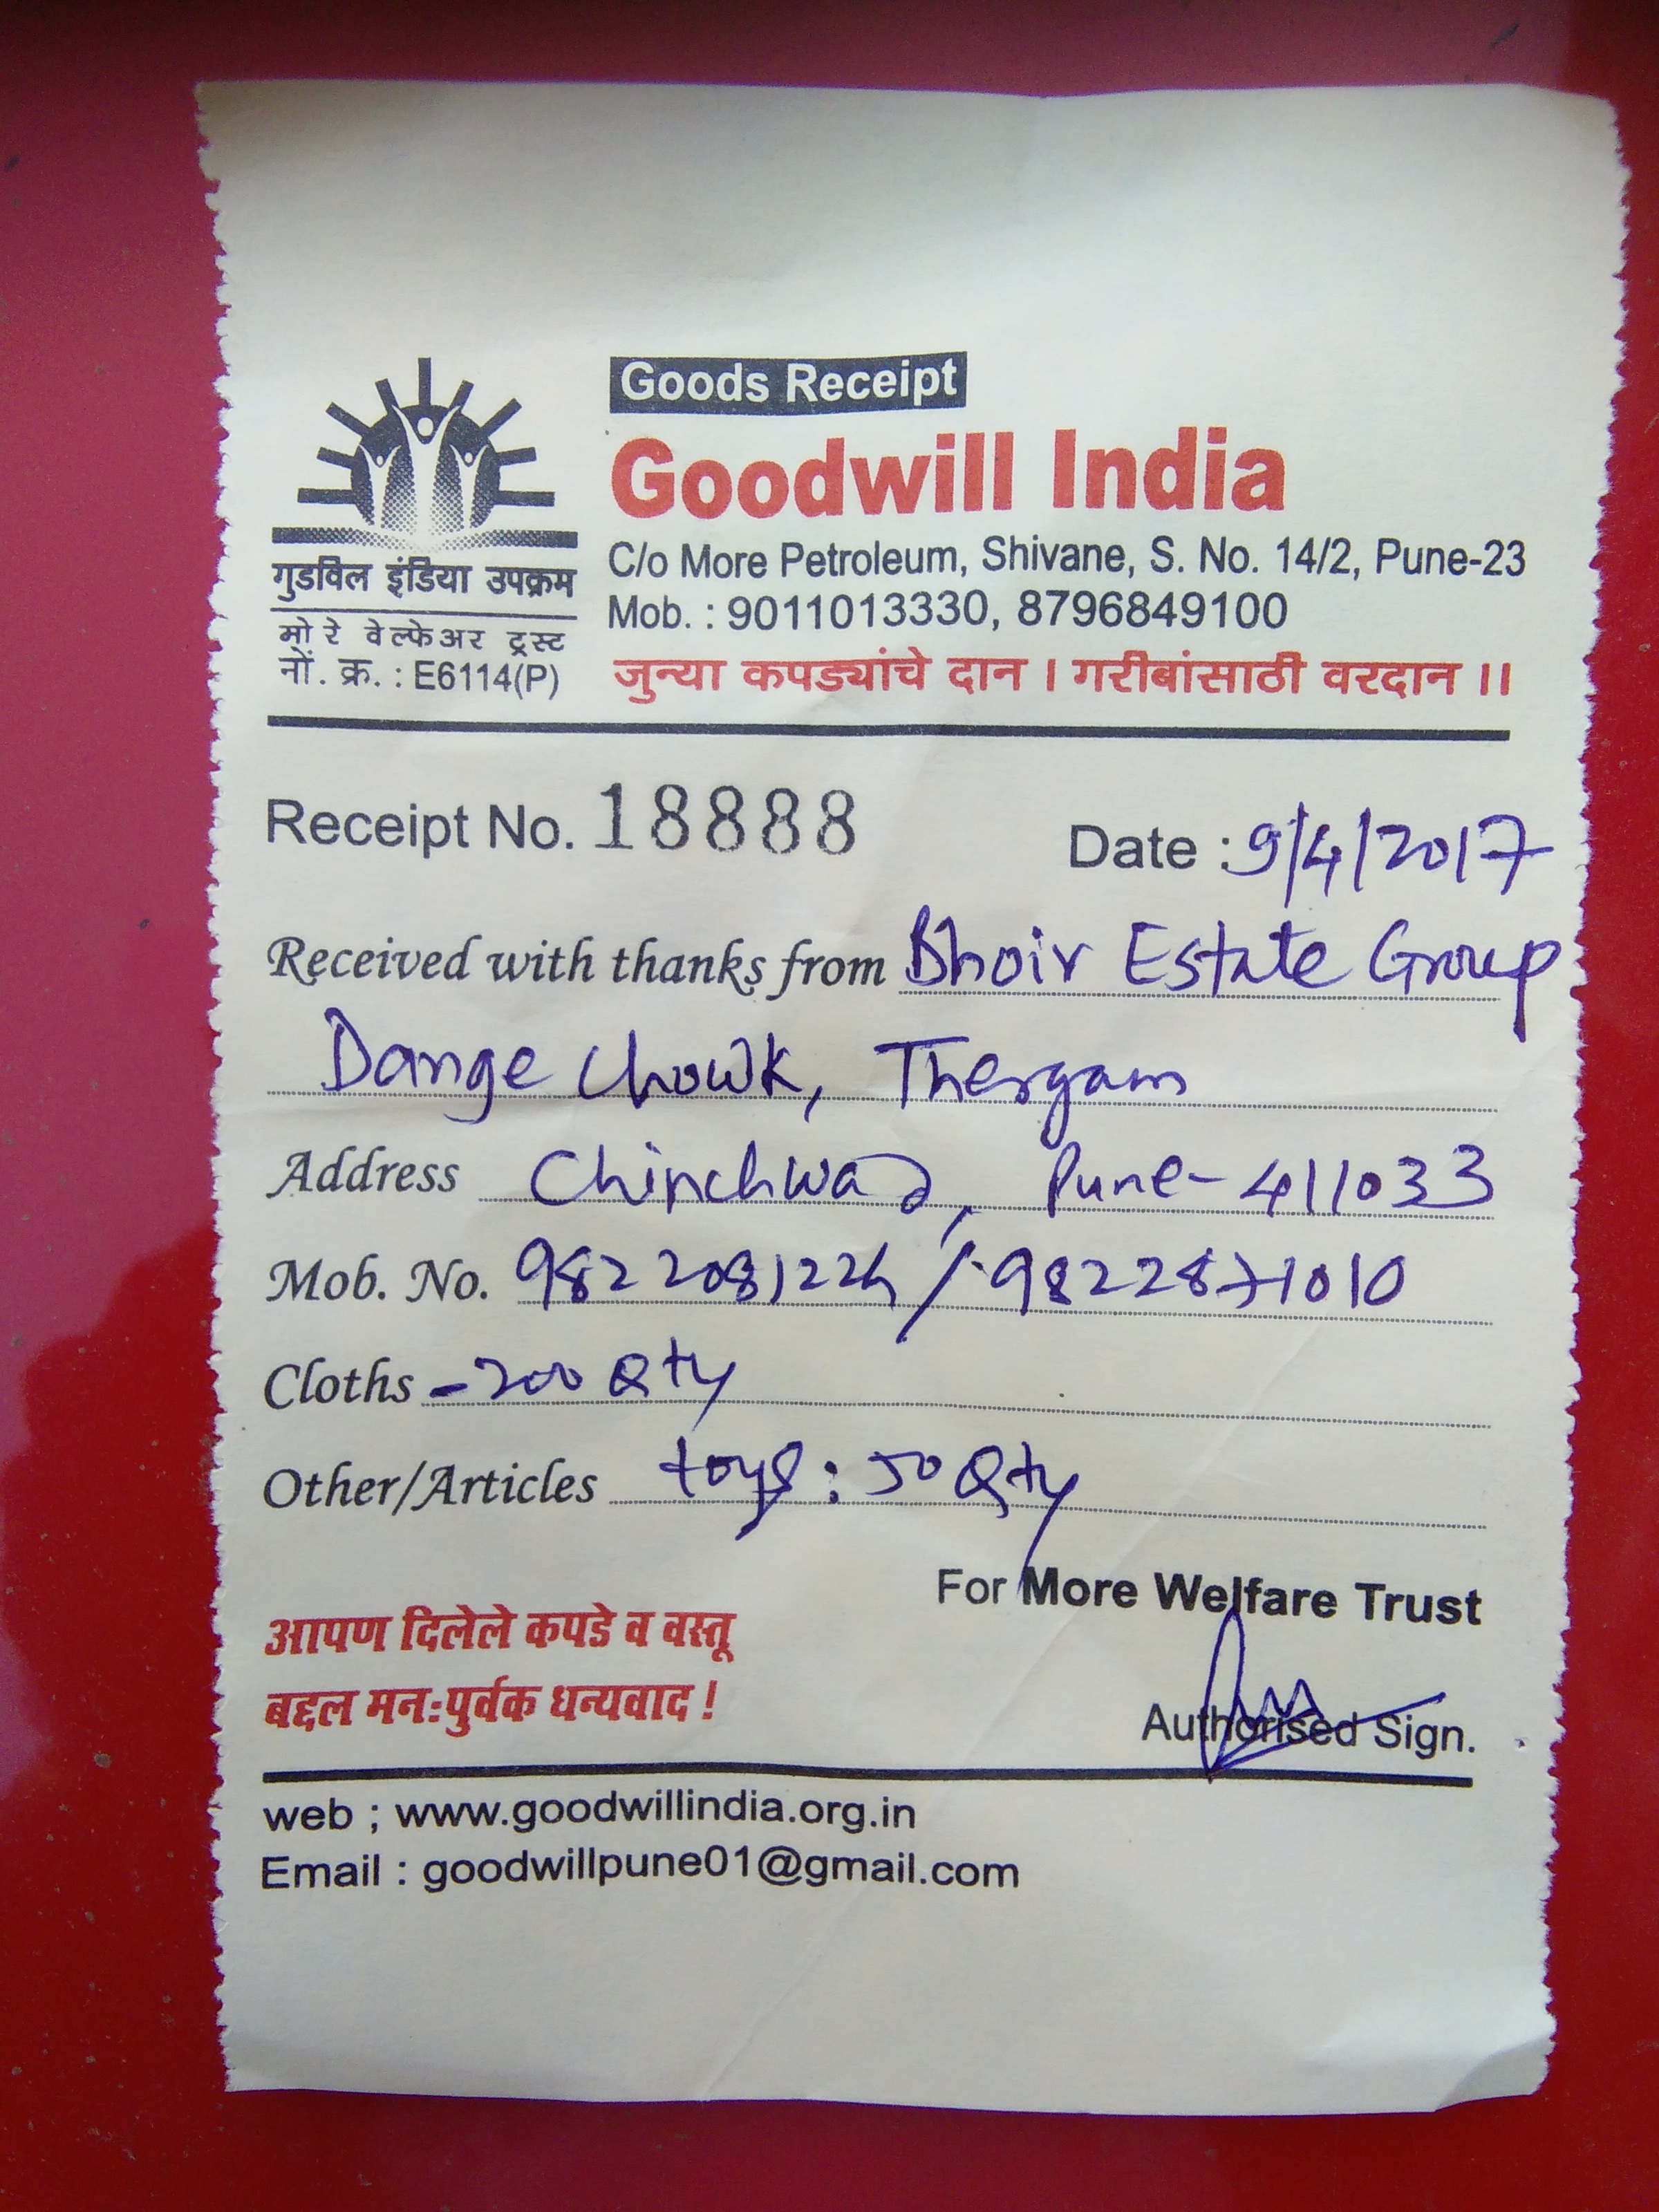 Goods Receipt
Goodwill India
C/o More Petroleum, Shivane, S. No. 14/2, Pune-23
Mob. : 9011013330, 8796849100
जुन्या कपड्यांचे दान । गरीबांसाठी वरदान ।।
गुडविल इंडिया उपक्रम
मोरे वेल्फेअर ट्रस्ट
नों. क्र. : E6114(P)
Receipt No. 18888
Date : 9/4/2017
Received with thanks from Bhoir Estate Group
Dange Chowk, Thergam
Address Chinchwad, Pune-411033
Mob. No. / 9822871010
Cloths - 200 Qty
Other/Articles toys : 50 Qty
For More Welfare Trust
आपण दिलेले कपडे व वस्तू
बद्दल मनःपुर्वक धन्यवाद !
Authorised Sign.
web ; www.goodwillindia.org.in
Email : goodwillpune01@gmail.com